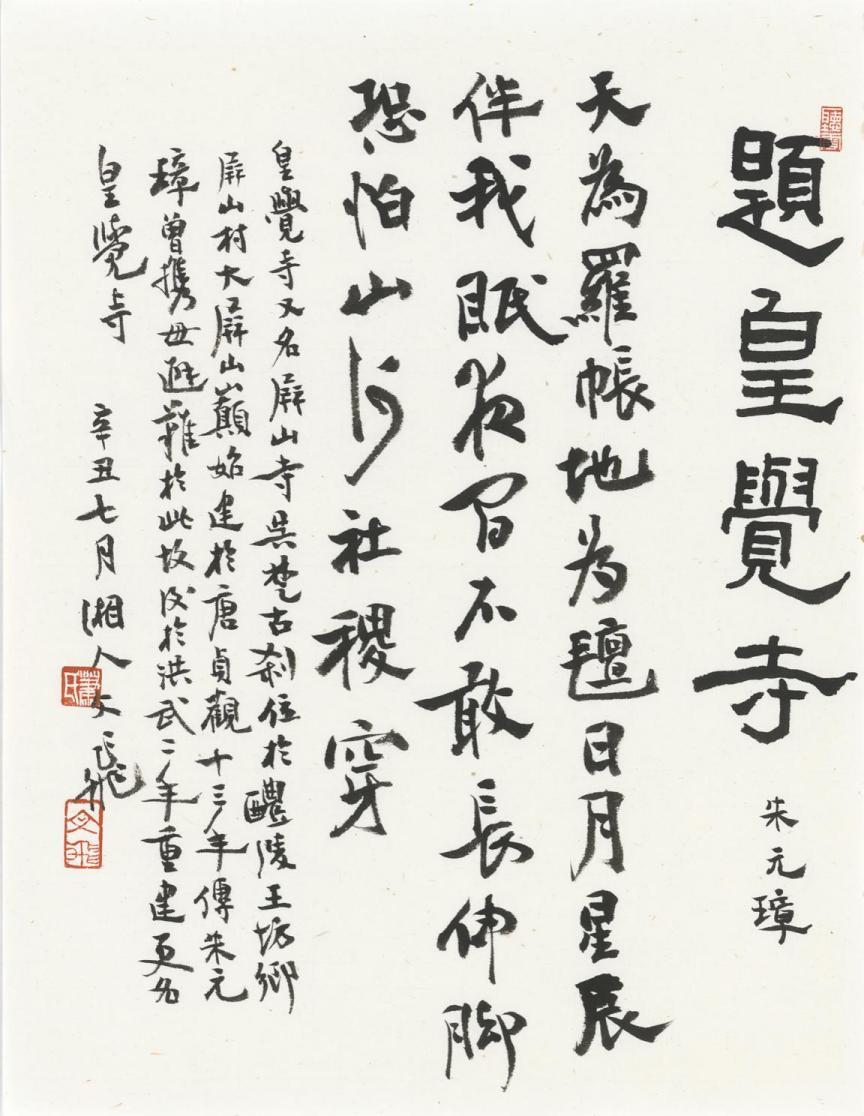 題皇覺寺
朱元璋
天為羅帳地为氊日月星辰
伴我眠夜间不敢長伸脚
恐怕山河社稷穿
皇覺寺又名屏山寺吴楚古刹位於醴陵王坊鄉
屏山村大屏山巔始建於唐貞觀十三年傳朱元
璋曾携母避難於此故後於洪武二年重建更名
皇覺寺
辛丑七月湘人文飛
蕭氏
文飛